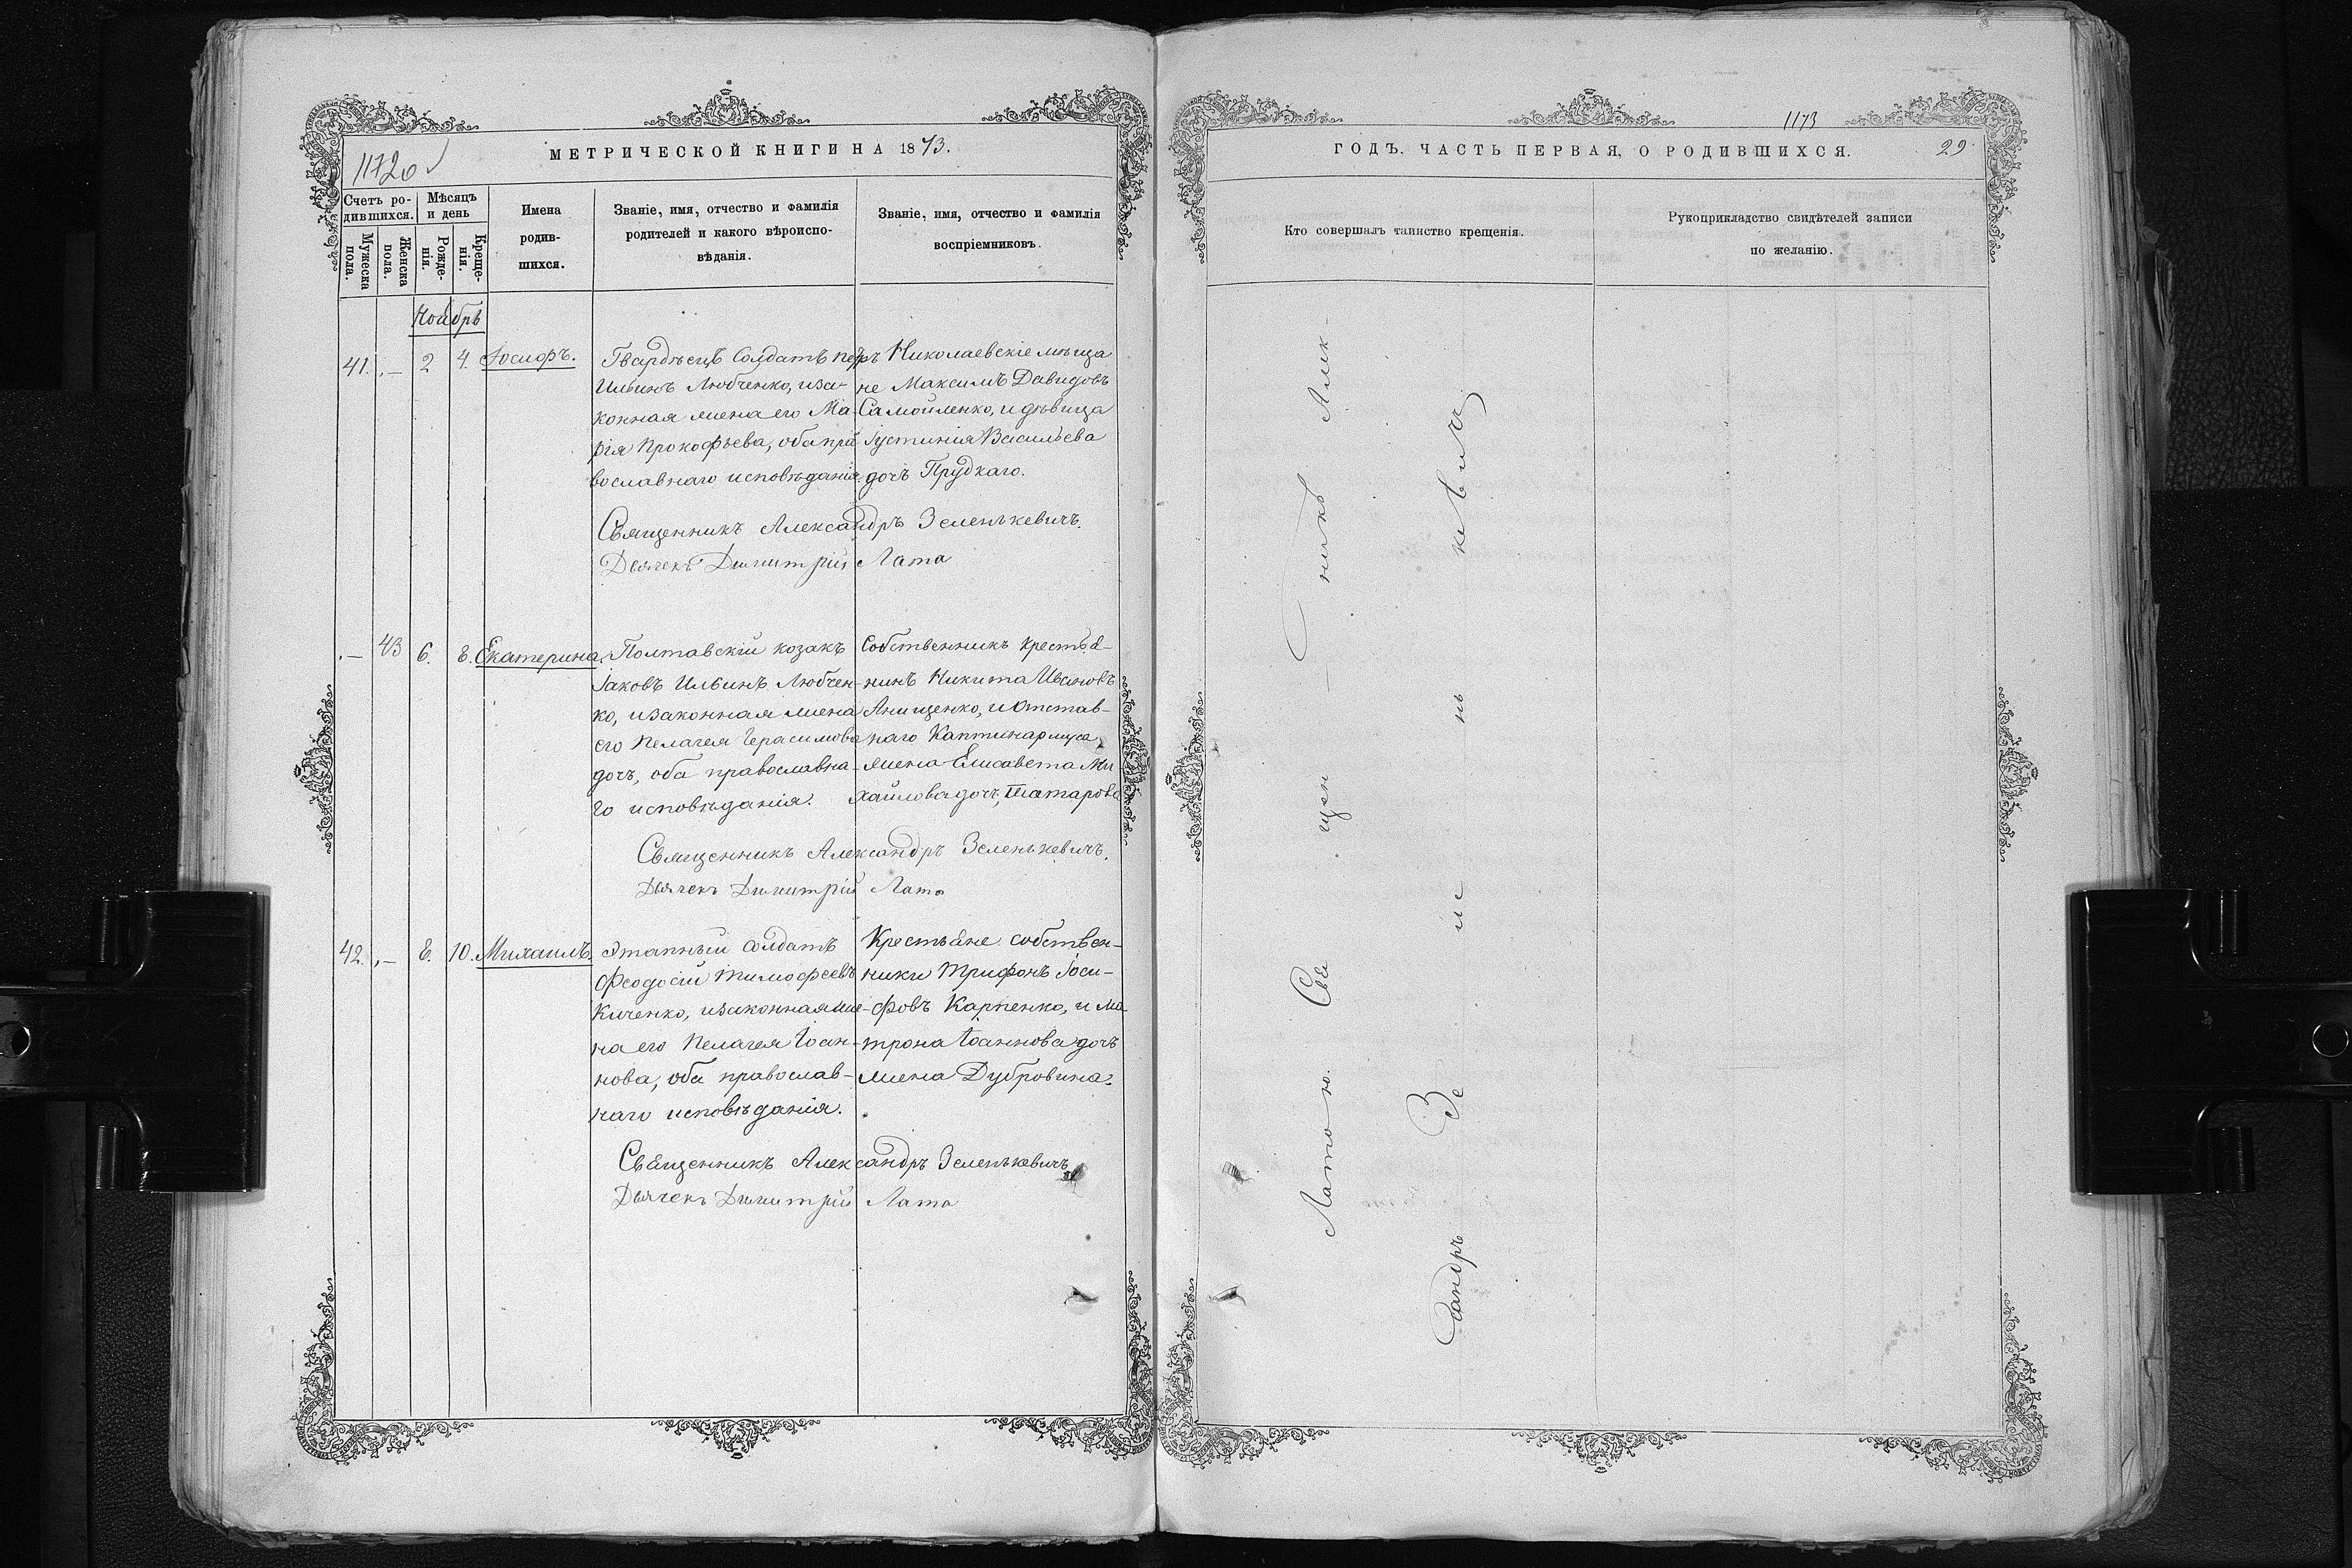 1172об
МЕТРИЧЕСКОЙ КНИГИ НА 1873.
Счетъ ро-
дившихся.
Мѣсяцъ
и день
Мужеска
пола.
Женска
пола.
Рожде-
нія.
Креще-
нія.
Имена
родив-
шихся.
Званіе, имя, отчество и фамилія
родителей и какого вѣроиспо-
вѣданія.
Званіе, имя, отчество и фамилія
воспріемниковъ.
Ноябрь
41. — 2 4. Іосифъ.
Гвардѣецъ Солдатъ Петръ
Ильинъ Любченко, иза-
конная жена его Ма-
рія Прокофьева, оба пра-
вославнаго исповѣданія.
Николаевскіе мѣща
не Максимъ Давидовъ
Самойленко, и дѣвица
Іустинія Васильева
дочь Прудкаго.
Священникъ Александръ Зеленькевичъ.
Дьячекъ Димитрій Лата
— 43 6. 8. Екатерина.
Полтавскій козакъ
Іаковъ Ильинъ Любчен-
ко, изаконная жена
его Пелагея Герасимова
дочь, оба православна-
го исповѣданія.
Собственникъ крестья-
нинъ Никита Ивановъ
Анищенко, и отстав-
наго Каптинармуса
жена Елисавета Ми
хайлова дочь, Татарова
Священникъ Александръ Зеленькевичъ.
Дьячекъ Димитрій Лата
42. — 8. 10. Михаилъ.
Этапный солдатъ
Феодосій Тимофеевъ
Киченко, изаконная же-
на его Пелагея Іоан-
нова, оба православ-
наго исповѣданія.
Крестьяне собствен-
ники Трифонъ Іоси-
фовъ Карпенко, и Ма-
трона Іоаннова дочь
жена Дубровина.
Священникъ Александръ Зеленькевичъ
Дьячекъ Димитрій Лата
1173
ГОДЪ. ЧАСТЬ ПЕРВАЯ, О РОДИВШИХСЯ.
29.
Кто совершалъ таинство крещенія.
Рукоприкладство свидѣтелей записи
по желанію.
Латою. Священникъ Алек-
сандръ Зеленькевичъ